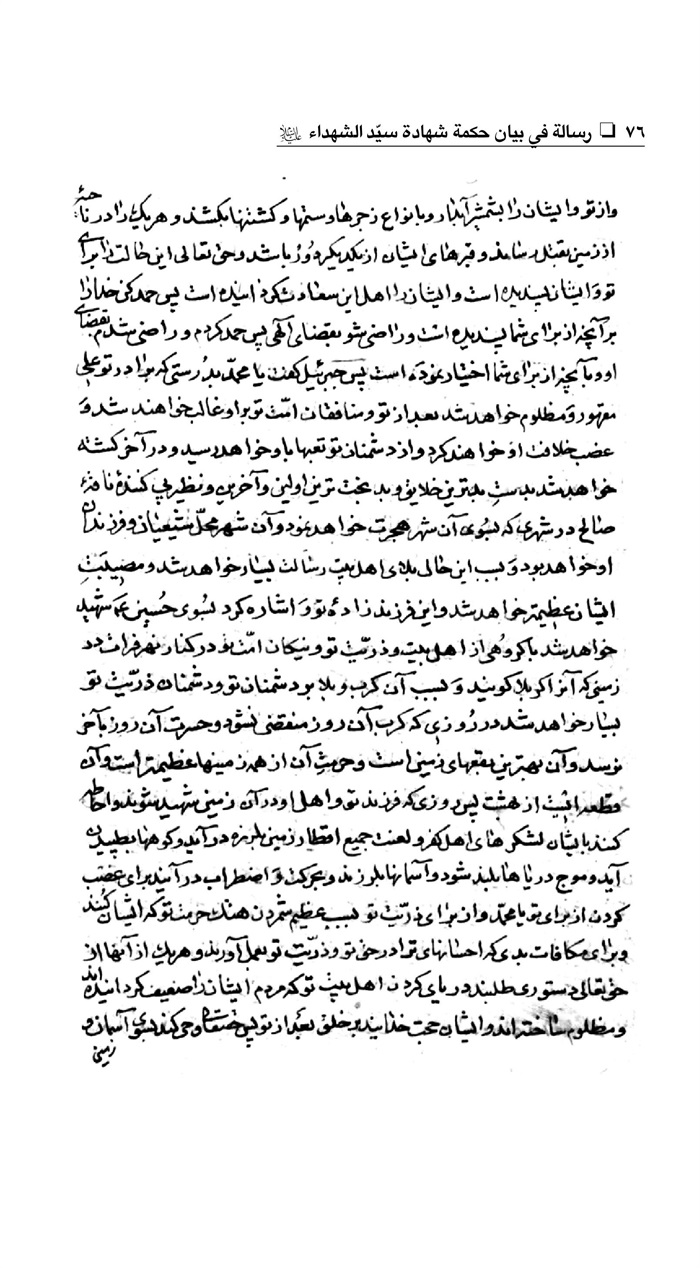 ٧٦ ❏ رسالة في بيان حكمة شهادة سيّد الشهداء
واز تو وایشان را بشمشیر آبدار و بانواع زجرها وستمها و کشتنها بکشند و هر یک را در ناحیهٔ
از زمین بقتل رسانند و قبرهای ایشان از یکدیکر دور باشد و حق تعالی این حالت را برای
تو و ایشان پسندیده است و ایشان را اهل این سعادت کردانیده است پس حمد کن خدا را
بر آنچه از برای شما پسندیده است و راضی شو بقضای الهی پس حمد کردم و راضی شدم بقضای
او و بآنچه از برای شما اختیار نموده است پس جبرئیل کفت یا محمّد بدرستی که برادر تو علی
مقهور و مظلوم خواهد شد بعد از تو و منافقان امّت تو بر او غالب خواهند شد و
غصب خلافت او خواهند کرد و از دشمنان تو تعبها باو خواهد رسید و در آخر کشته
خواهد شد بدست بدترین خلایق و بدبخت ترین اولین و آخرین و نظیر پی کنندهٔ ناقهٔ
صالح در شهری که بسوی آن شهر هجرت خواهد نمود و آن شهر محلّ شیعیان و فرزندان
او خواهد بود و بسبب این حال بلای اهل بیت رسالت بسیار خواهد شد و مصیبت
ایشان عظیمتر خواهد شد و این فرزند زادهٔ تو و اشاره کرد بسوی حسین ع شهید
خواهد شد با کروهی از اهل بیت و ذریّت تو و نیکان امّت تو در کنار نهر فرات در
زمینی که آنرا کربلا کویند و بسبب آن کرب و بلا بر دشمنان تو و دشمنان ذریّت تو
بسیار خواهد شد در روزی که کرب آن روز منقضی نشود و حسرت آن روز بآخر
نرسد و آن بهترین بقعهای زمین است و حرمت آن از همه زمینها عظیمتر است و آن
قطعه ایست از بهشت پس روزی که فرزند تو و اهل او در آن زمین شهید شوند و احاطه
کنند بایشان لشکرهای اهل کفر و لعنت جمیع اقطار زمین بلرزه در آید و کوهها بطپیدن
آید و موج دریاها بلند شود و آسمانها بلرزند و بحرکت و اضطراب در آمیند برای غضب
کردن از برای تو یا محمّد و از برای ذریّت تو بسبب عظیم شمردن هتک حرمت تو که ایشان کنند
و برای مکافات بدی که احسانهای ترا در حق تو و ذریّت تو بعمل آورند و هر یک از آنها از
حق تعالی دستوری طلبند در یاری کردن اهل بیت تو که مردم ایشان را ضعیف کردانیده اند
و مظلوم ساخته اند و ایشان حجت خدایند بر خلق بعد از تو پس حقتعالی وحی کند بسوی آسمان و
زمین